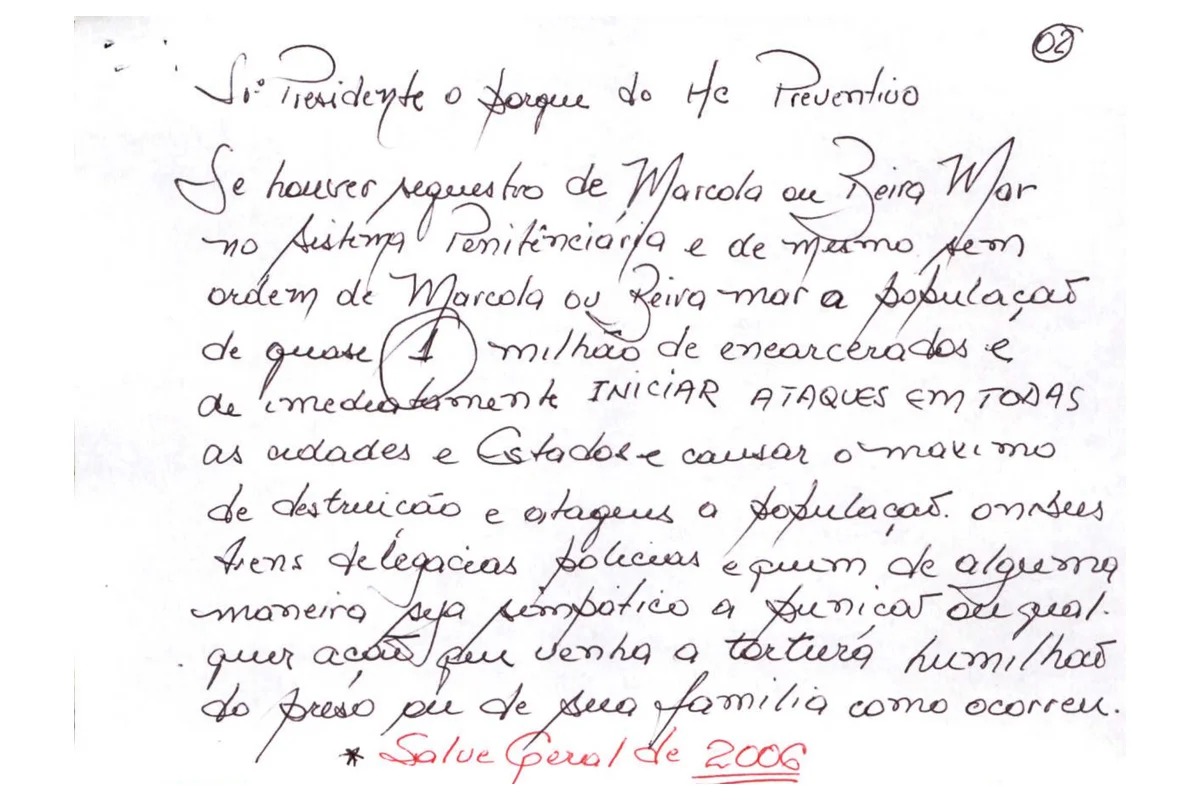 02
Sr. Presidente o porque do H/c Preventivo
Se houver sequestro de Marcola ou Beira Mar
no sistema Penitênciária e de mesmo sem
ordem de Marcola ou Beira-mar a população
de quase 1 milhão de encarcerados e
de imediatamente INICIAR ATAQUES EM TODAS
as cidades e Estados e causar o maximo
de destruição e ataques a população. onibus
trens delegacias policias e quem de alguma
maneira seja simpatico a punição ou qual-
quer ação que venha a tortura humilhaõ
do preso ou de sua familia como ocorreu.
* Salve Geral de 2006